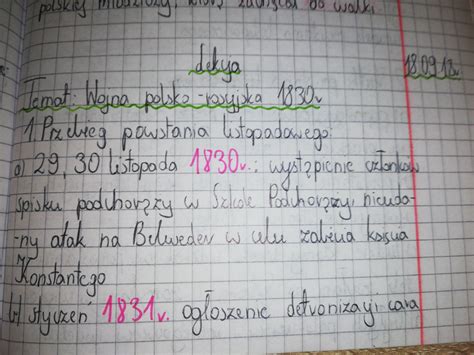 polskiej młodzieży, która zawiązał do walki.
Lekcja 18.09.18r.
Temat: Wojna polsko-rosyjska 1830r
1. Przebieg powstania listopadowego:
a) 29, 30 listopada 1830r.: wystąpienie członków
spisku podchorąży w Szkole Podchorąży, nieuda-
-ny atak na Belweder w celu zabicia księcia
Konstantego
b) styczeń 1831r. ogłoszenie detronizacji cara